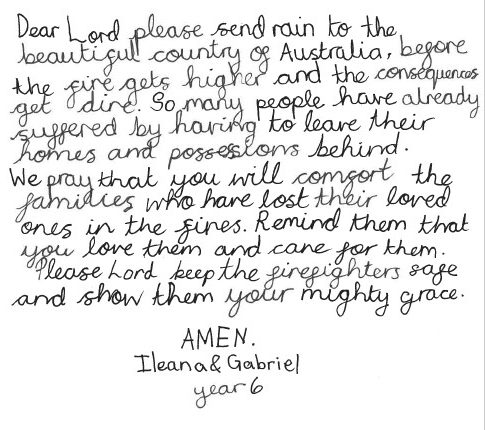 Dear Lord please send rain to the
beautiful country of Australia, before
the fire gets higher and the consequences
get dire. So many people have already
suffered by having to leave their
homes and possessions behind.
We pray that you will comfort the
families who have lost their loved
ones in the fires. Remind them that
you love them and care for them.
Please Lord keep the firefighters safe
and show them your mighty grace.
AMEN.
Ileana & Gabriel
year 6